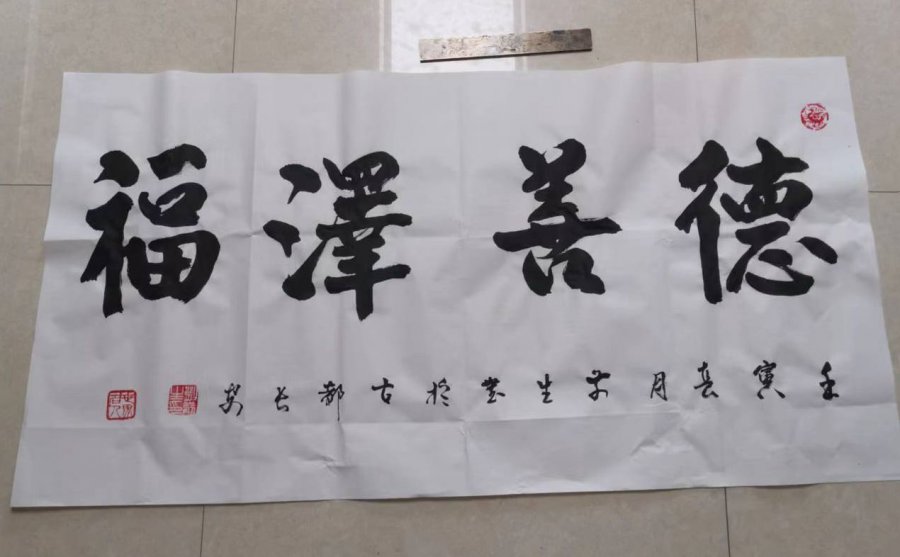 德善澤福
壬寅春月草生堂於古都长安